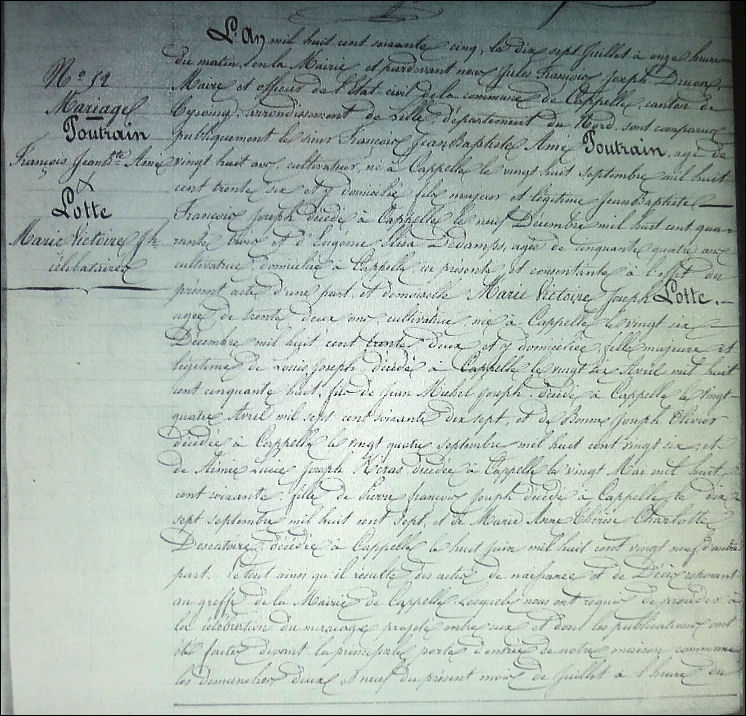 N° 52
Mariage
Poutrain
François Jean Bte Aimé
&
Lotte
Marie Victoire Jh
célibataires
L'an mil huit cent soixante cinq, le dix sept Juillet à onze heures
du matin, en la Mairie et pardevant nous Jules François Joseph
Maire et officier de l'état civil de la commune de Cappelle, canton de
Cysoing, arrondissement de Lille, département du Nord, sont comparus
publiquement le sieur François Jean Baptiste Aimé Poutrain, agé de
vingt huit ans, cultivateur, né à Cappelle le vingt huit Septembre mil huit
cent trente six et y domicilié, fils majeur et légitime de Jean Baptiste
François Joseph décédé à Cappelle le neuf Décembre mil huit cent qua-
rante trois et d'Eugénie Elisa Dedamps, agée de cinquante quatre ans
cultivatrice domiciliée à Cappelle ici présente et consentante à l'effet du
présent acte d'une part, et demoiselle Marie Victoire Joseph Lotte,
agée de trente deux ans cultivatrice née à Cappelle le vingt six
Décembre mil huit cent trente deux et y domiciliée, fille majeure et
légitime de Louis Joseph décédé à Cappelle le vingt six Avril mil huit
cent cinquante huit, fils de Jean Michel Joseph, décédé à Cappelle le vingt
quatre Avril mil sept cent soixante dix sept, et de Bonne Joseph Olivier
décédée à Cappelle le vingt quatre septembre mil huit cent vingt six, et
de Aimée Lucie Joseph décédée à Cappelle le vingt Mai mil huit
cent soixante, fille de Pierre François Joseph décédé à Cappelle le dix
sept Septembre mil huit cent sept, et de Marie Anne Thérèse Charlotte
Descatoire, décédée à Cappelle le huit Juin mil huit cent vingt neuf d'autre
part. Le tout ainsi qu'il résulte des actes de naissance et de Décès reposant
au greffe de la Mairie de Cappelle, Lesquels nous ont requis de procéder à
la célébration du mariage projeté entre eux et dont les publications ont
été faites devant la principale porte d'entrée de notre maison commune
les dimanches deux et neuf du présent mois de Juillet à l'heure de